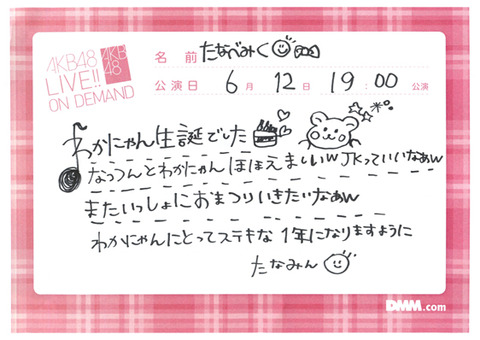 AKB48
LIVE!!
ON DEMAND
AKB
48
名前 たなべみく
公演日 6月 12日 19:00 公演
わかにゃん生誕でした
なっつんとわかにゃんほほえましいw JKっていいなぁw
またいっしょにおまつりいきたいなぁw
わかにゃんにとってステキな1年になりますように
たなみん
DMM.com